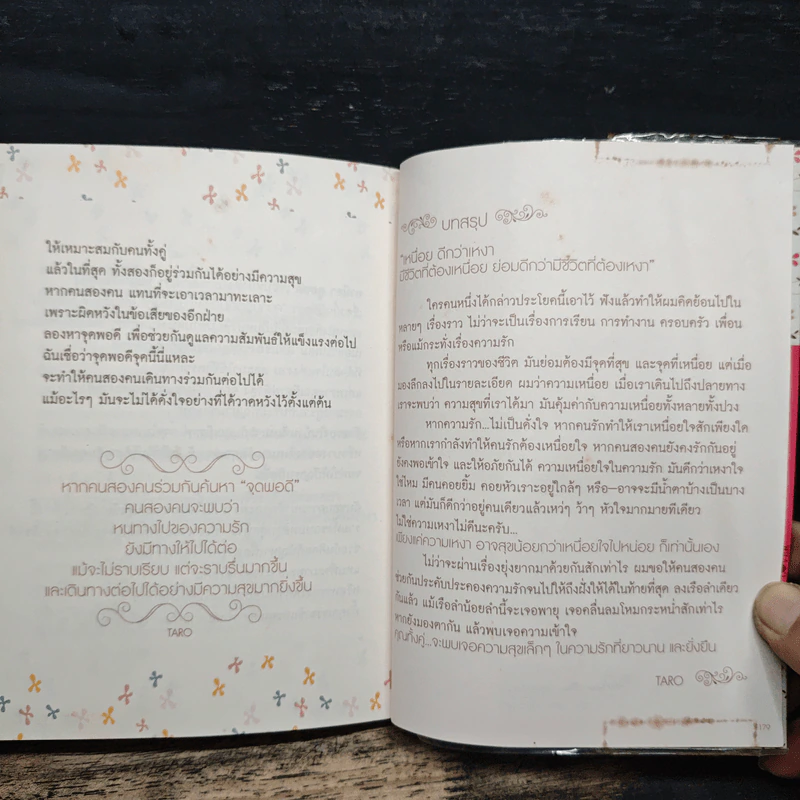 ให้เหมาะสมกับคนทั้งคู่
แล้วในที่สุด ทั้งสองก็อยู่ร่วมกันได้อย่างมีความสุข
หากคนสองคน แทนที่จะเอาเวลามาทะเลาะ
เพราะผิดหวังในข้อเสียของอีกฝ่าย
ลองหาจุดพอดี เพื่อช่วยกันดูแลความสัมพันธ์ให้แข็งแรงต่อไป
ฉันเชื่อว่าจุดพอดีจุดนี้นี่แหละ
จะทำให้คนสองคนเดินทางร่วมกันต่อไปได้
แม้อะไรๆ มันจะไม่ได้ดั่งใจอย่างที่ได้วาดหวังไว้ตั้งแต่ต้น
หากคนสองคนร่วมกันค้นหา “จุดพอดี”
คนสองคนจะพบว่า
หนทางไปของความรัก
ยังมีทางให้ไปได้ต่อ
แม้จะไม่ราบเรียบ แต่จะราบรื่นมากขึ้น
และเดินทางต่อไปได้อย่างมีความสุขมากยิ่งขึ้น
TARO
บทสรุป
“เหนื่อย ดีกว่าเหงา
มีชีวิตที่ต้องเหนื่อย ย่อมดีกว่ามีชีวิตที่ต้องเหงา”
ใครคนหนึ่งได้กล่าวประโยคนี้เอาไว้ ฟังแล้วทำให้ผมคิดย้อนไปใน
หลายๆ เรื่องราว ไม่ว่าจะเป็นเรื่องการเรียน การทำงาน ครอบครัว เพื่อน
หรือแม้กระทั่งเรื่องความรัก
ทุกเรื่องราวของชีวิต มันย่อมต้องมีจุดที่สุข และจุดที่เหนื่อย แต่เมื่อ
มองลึกลงไปในรายละเอียด ผมว่าความเหนื่อย เมื่อเราเดินไปถึงปลายทาง
เราจะพบว่า ความสุขที่เราได้มา มันคุ้มค่ากับความเหนื่อยทั้งหลายทั้งปวง
หากความรัก...ไม่เป็นดั่งใจ หากคนรักทำให้เราเหนื่อยใจสักเพียงใด
หรือหากเรากำลังทำให้คนรักต้องเหนื่อยใจ หากคนสองคนยังคงรักกันอยู่
ยังคงพอเข้าใจ และให้อภัยกันได้ ความเหนื่อยใจในความรัก มันดีกว่าเหงาใจ
ใช่ไหม มีคนคอยยิ้ม คอยหัวเราะอยู่ใกล้ๆ หรือ—อาจจะมีน้ำตาบ้างเป็นบาง
เวลา แต่มันก็ดีกว่าอยู่คนเดียวแล้วเหว่ๆ ว้าๆ หัวใจมากมายทีเดียว
ไม่ใช้ความเหงาไม่ดีนะครับ...
เพียงแค่ความเหงา อาจสุขน้อยกว่าเหนื่อยใจไปหน่อย ก็เท่านั้นเอง
ไม่ว่าจะผ่านเรื่องยุ่งยากมาด้วยกันสักเท่าไร ผมขอให้คนสองคน
ช่วยกันประคับประคองความรักจนไปให้ถึงฝั่งให้ได้ในท้ายที่สุด ลงเรือลำเดียว
กันแล้ว แม้เรือลำน้อยลำนี้จะเจอพายุ เจอคลื่นลมโหมกระหน่ำสักเท่าไร
หากยังมองตากัน แล้วพบเจอความเข้าใจ
คุณทั้งคู่...จะพบเจอความสุขเล็กๆ ในความรักที่ยาวนาน และยั่งยืน
TARO